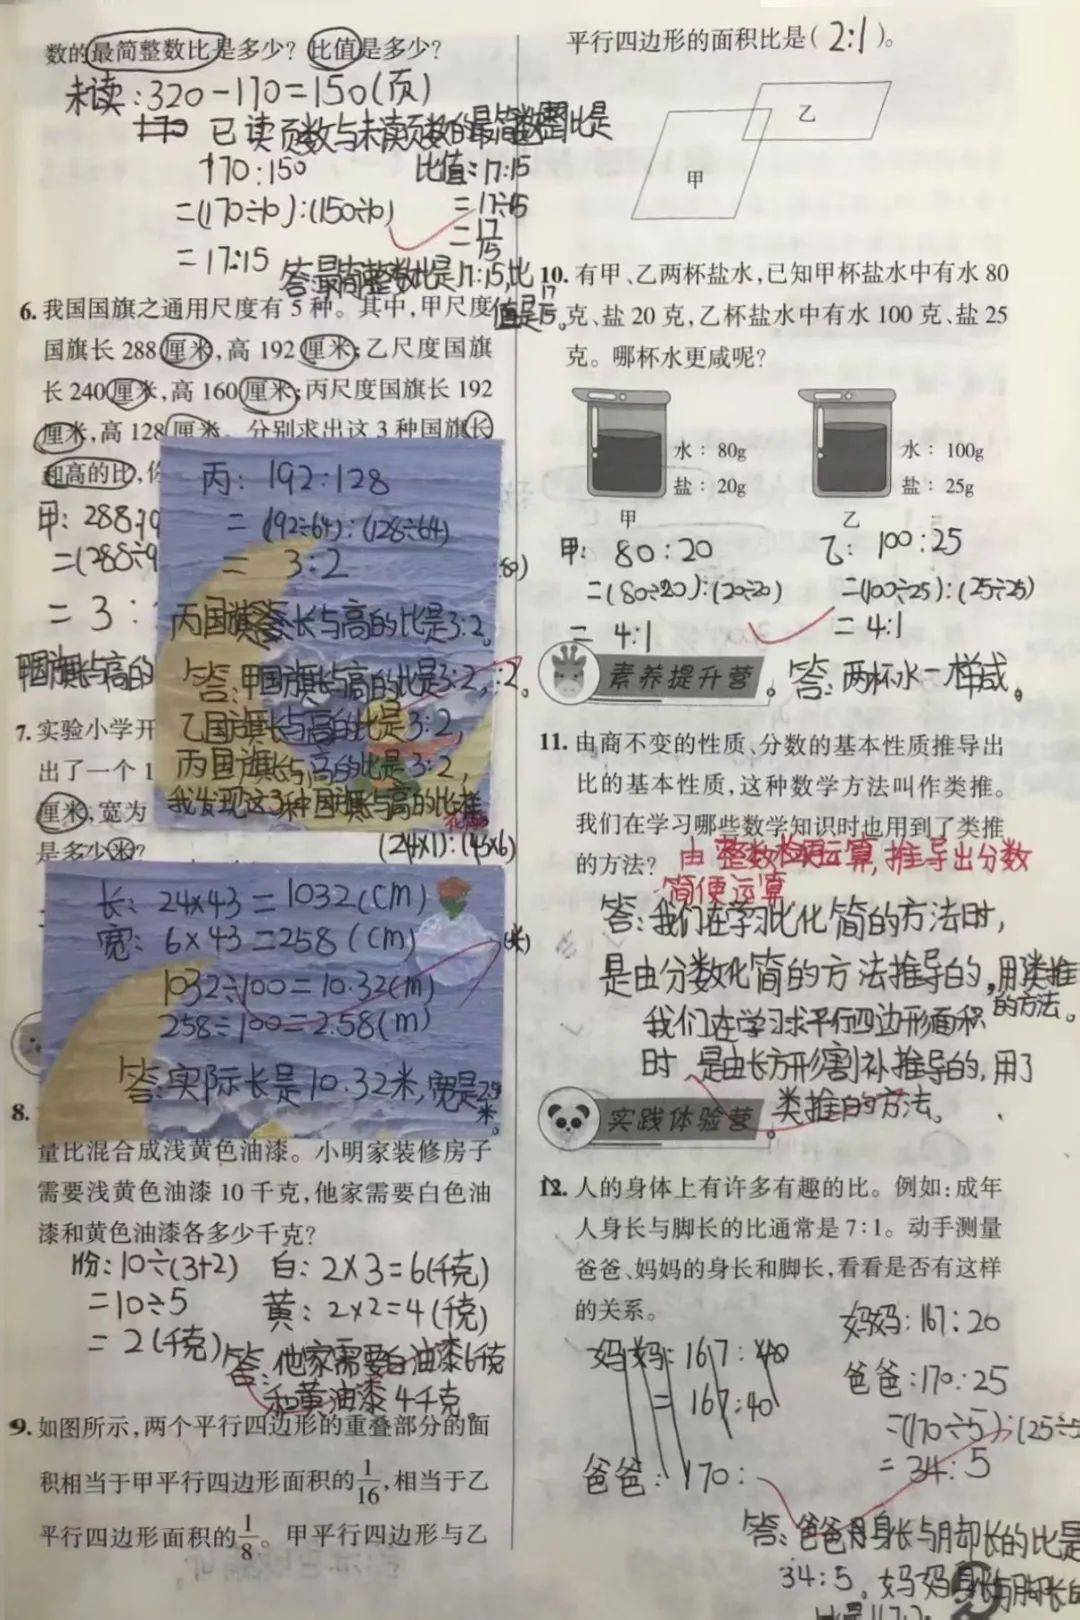 数的最简整数比是多少？比值是多少？
未读：320－170＝150(页)
已读页数与未读页数的最简整数比是
170:150
＝(170÷10):(150÷10)
＝17:15
比值：17:15
＝17÷15
＝17/15
答：最简整数比是17:15,比
值是17/15。
6. 我国国旗之通用尺度有 5 种。其中,甲尺度
国旗长 288 厘米,高 192 厘米;乙尺度国旗
长 240 厘米,高 160 厘米;丙尺度国旗长 192
厘米,高 128 厘米。分别求出这 3 种国旗长
和高的比,你
甲：288:19
＝(288÷9
＝3:
甲国旗长与高的
丙：192:128
＝(192÷64):(128÷64)
＝3:2
丙国旗长与高的比是3:2。
答：甲国旗长与高的比是3:2,
乙国旗长与高的比是3:2,
丙国旗长与高的比是3:2,
我发现这3种国旗长与高的比
7. 实验小学开
出了一个 1
厘米,宽为
是多少米?
(24×1):(43×6)
长：24×43＝1032(cm)
宽：6×43＝258(cm)
1032÷100＝10.32(m)
258÷100＝2.58(m)
答：实际长是10.32米,宽是2.58
米。
8.
量比混合成浅黄色油漆。小明家装修房子
需要浅黄色油漆 10 千克,他家需要白色油
漆和黄色油漆各多少千克?
份：10÷(3+2)
＝10÷5
＝2(千克)
白：2×3＝6(千克)
黄：2×2＝4(千克)
答：他家需要白油漆6千克
和黄油漆4千克
9. 如图所示,两个平行四边形的重叠部分的面
积相当于甲平行四边形面积的1/16,相当于乙
平行四边形面积的1/8。甲平行四边形与乙
平行四边形的面积比是( 2:1 )。
乙
甲
10. 有甲、乙两杯盐水,已知甲杯盐水中有水 80
克、盐 20 克,乙杯盐水中有水 100 克、盐 25
克。哪杯水更咸呢?
水：80g
盐：20g
甲
水：100g
盐：25g
乙
甲：80:20
＝(80÷20):(20÷20)
＝4:1
乙：100:25
＝(100÷25):(25÷25)
＝4:1
答：两杯水一样咸。
素养提升营
11. 由商不变的性质、分数的基本性质推导出
比的基本性质,这种数学方法叫作类推。
我们在学习哪些数学知识时也用到了类推
的方法?
由整数简便运算,推导出分数
简便运算
答：我们在学习比化简的方法时,
是由分数化简的方法推导的,用类推
的方法。
我们在学习求平行四边形面积
时,是由长方形割补推导的,用了
类推的方法。
实践体验营
12. 人的身体上有许多有趣的比。例如:成年
人身长与脚长的比通常是 7:1。动手测量
爸爸、妈妈的身长和脚长,看看是否有这样
的关系。
妈妈：167:40
＝167:40
爸爸：170:
妈妈：167:20
爸爸：170:25
＝(170÷5):(25÷5
＝34:5
答：爸爸身长与脚长的比是
34:5。妈妈身长与脚长的